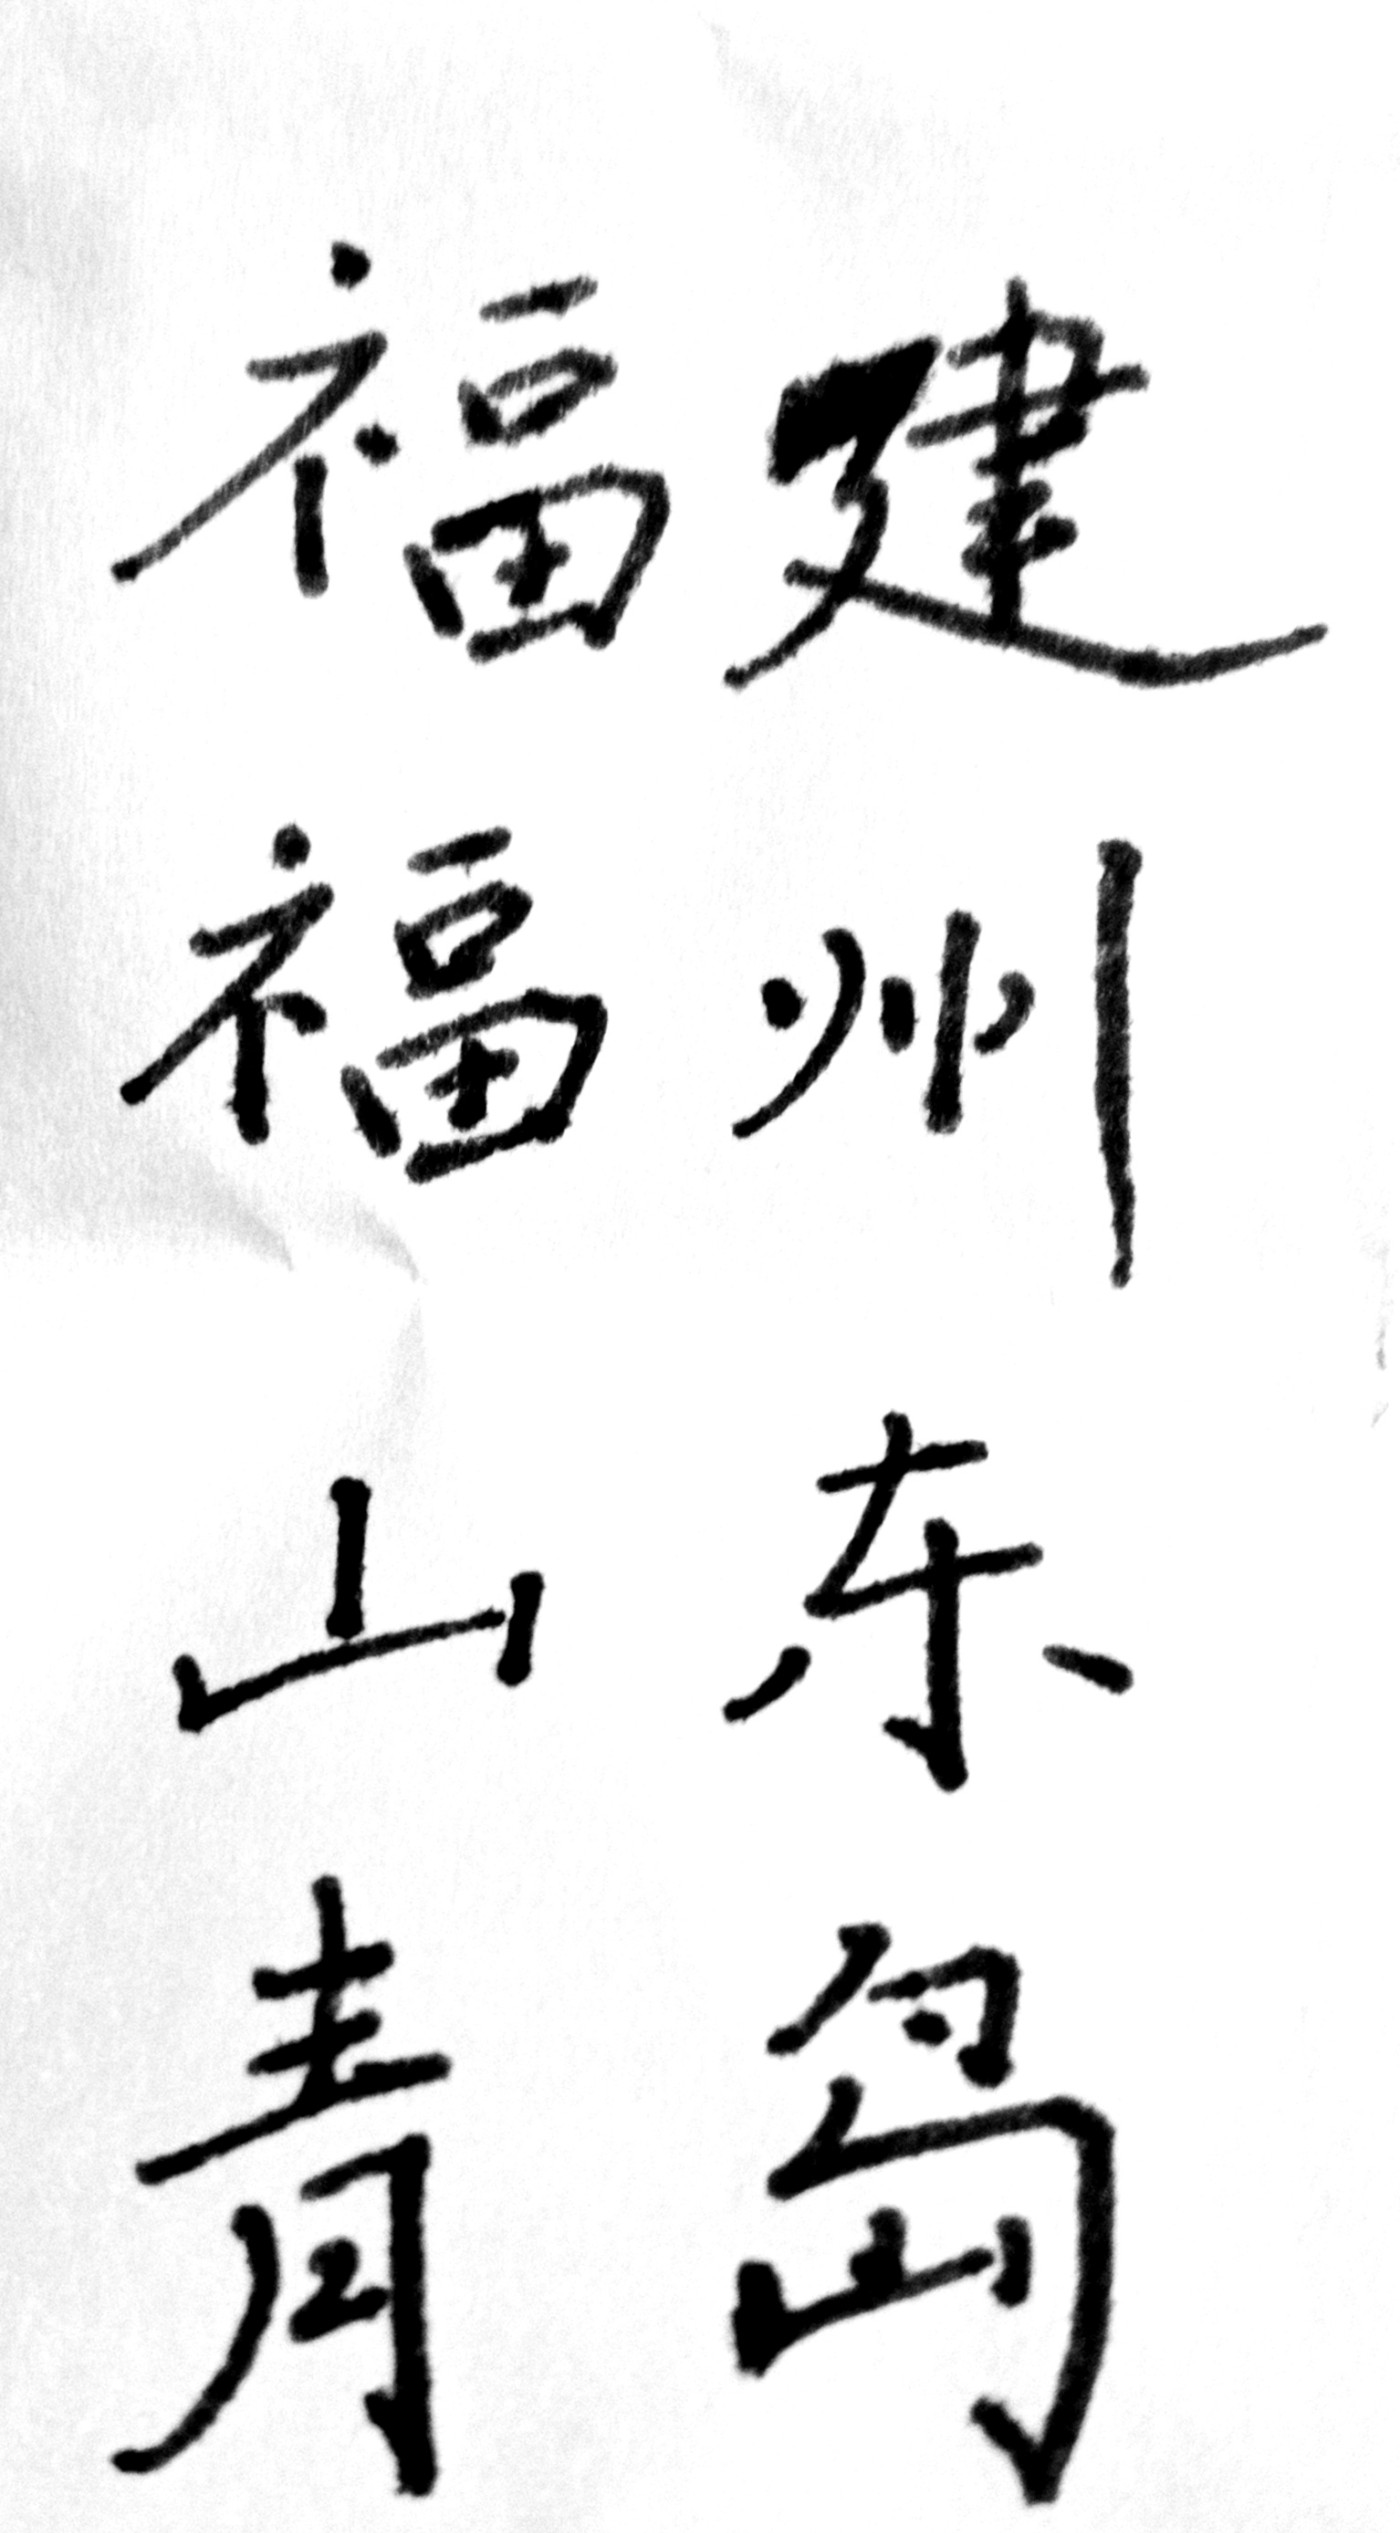 福建
福州
山东
青岛